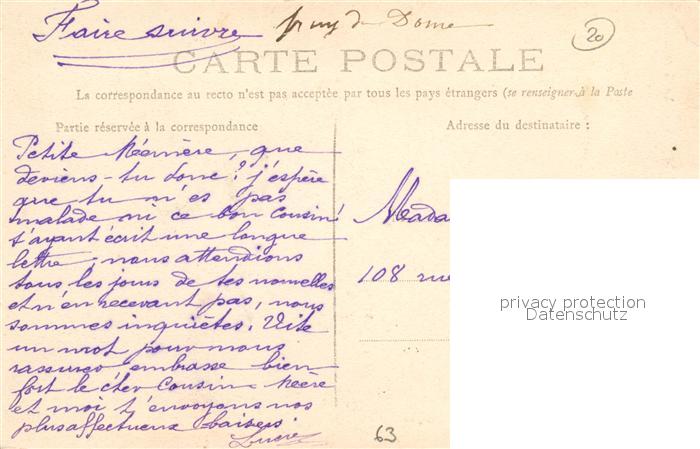 Faire suivre puy de Dome
20
CARTE POSTALE
La correspondance au recto n'est pas acceptée par tous les pays étrangers (se renseigner à la Poste
Partie réservée à la correspondance
Adresse du destinataire :
Petite Mémère, que
deviens-tu donc? j'espère
que tu n'es pas
malade ni ce bon Cousin!
t'ayant écrit une longue
lettre, nous attendions
tous les jours de tes nouvelles
et n'en recevant pas, nous
sommes inquiètes. Vite
un mot pour nous
rassurer, embrasse bien
fort le cher Cousin -
et moi t'envoyons nos
plus affectueux baisers.
Mada
108 rue
privacy protection
Datenschutz
63